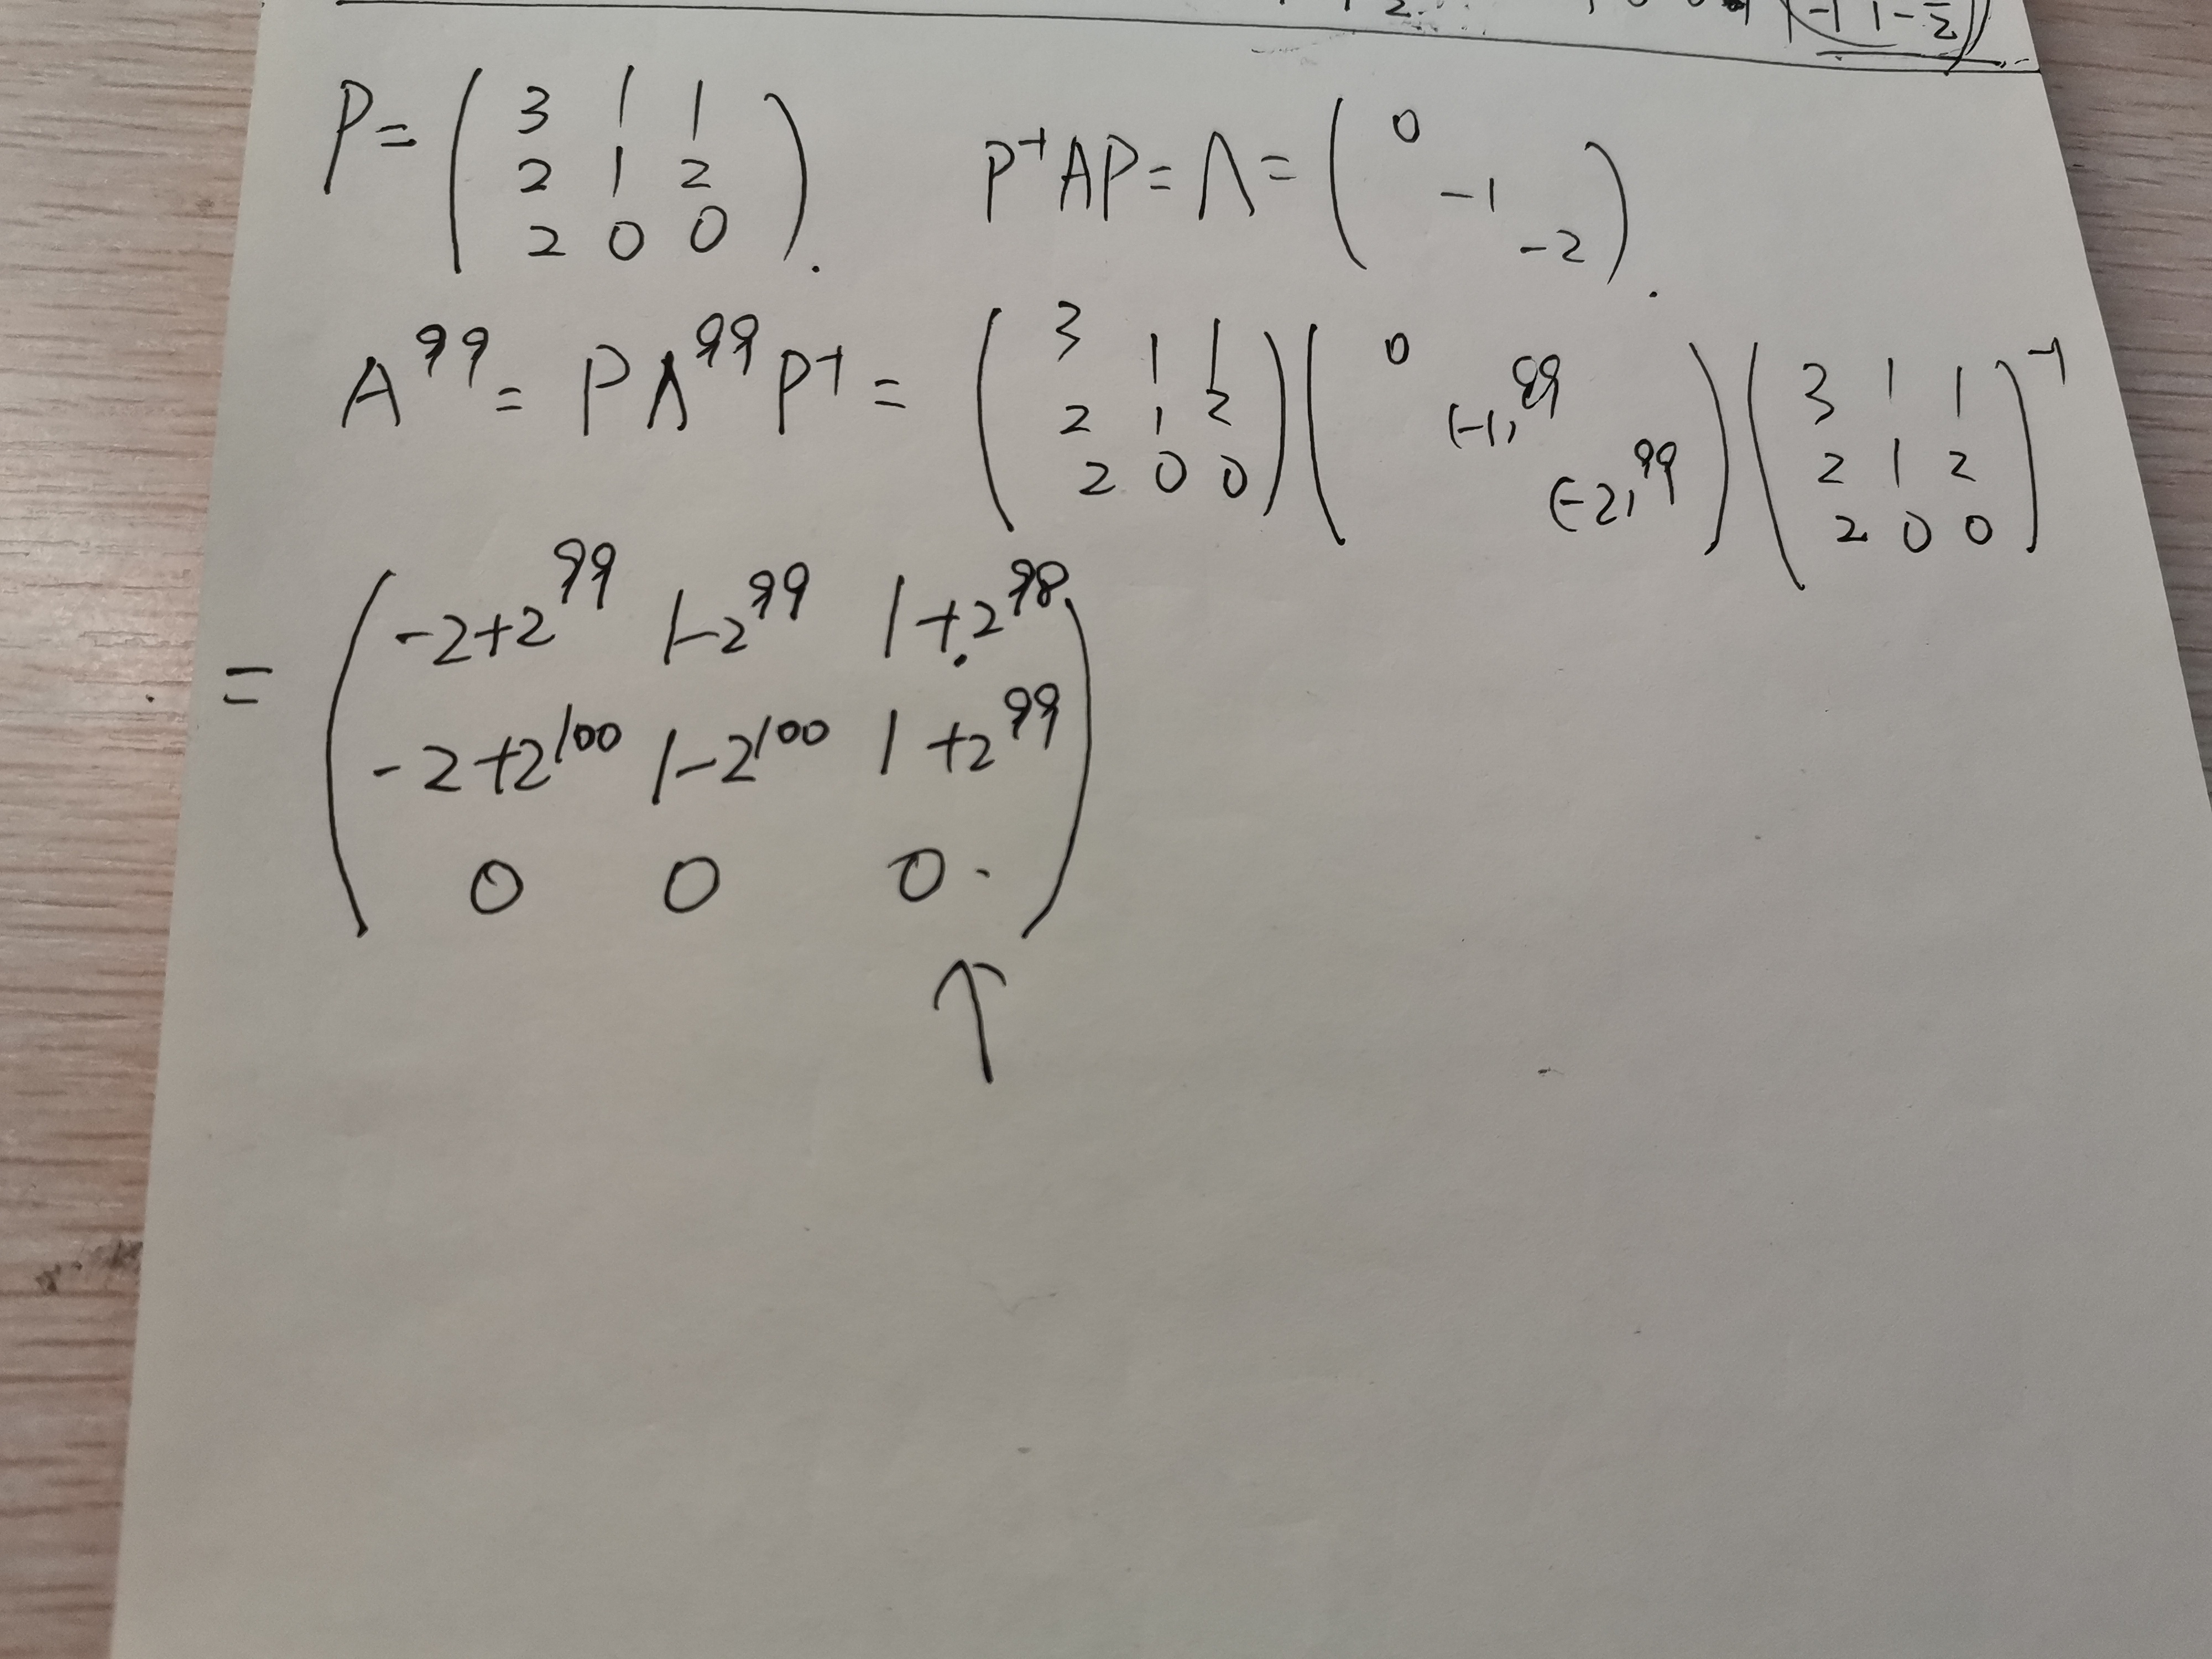 -1 1 -1/2
P = ( 3 1 1
2 1 2
2 0 0 ). P⁻¹AP = Λ = ( 0
-1
-2 ).
A⁹⁹ = PΛ⁹⁹P⁻¹ = ( 3 1 1
2 1 2
2 0 0 ) ( 0
(-1)⁹⁹
(-2)⁹⁹ ) ( 3 1 1
2 1 2
2 0 0 )⁻¹
= ( -2+2⁹⁹ 1-2⁹⁹ 1+2⁹⁸
-2+2¹⁰⁰ 1-2¹⁰⁰ 1+2⁹⁹
0 0 0. )
↑